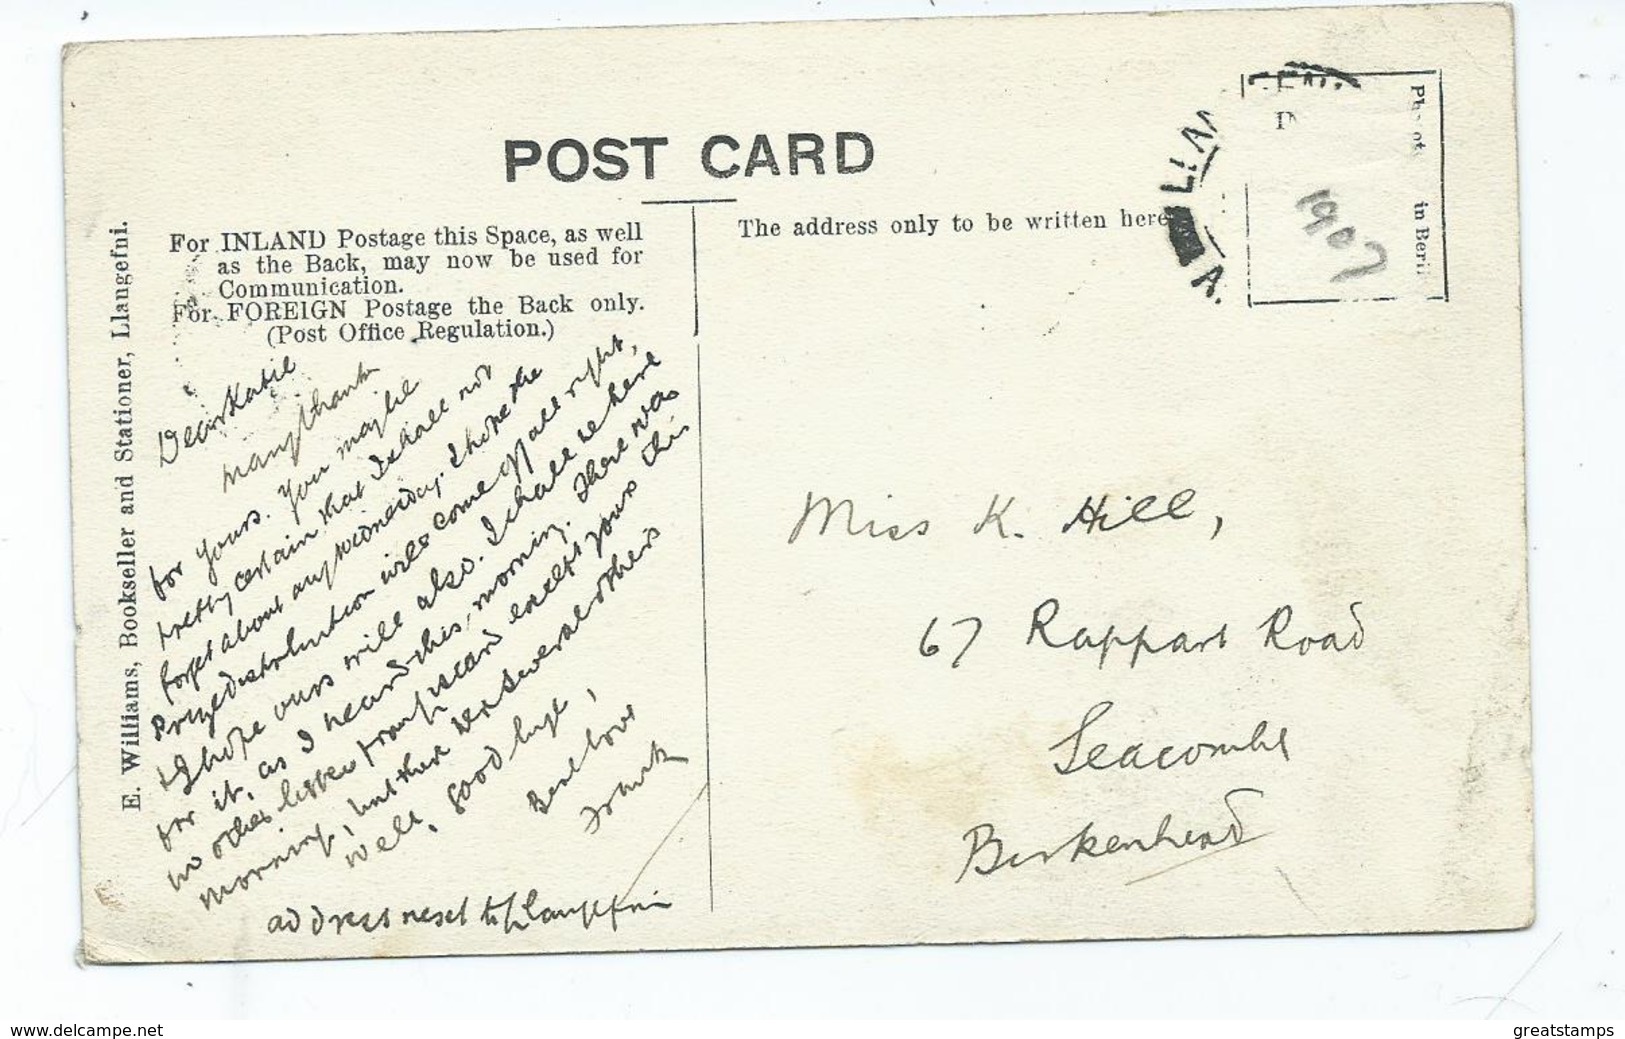 POST CARD
For INLAND Postage this Space, as well
as the Back, may now be used for
Communication.
For FOREIGN Postage the Back only.
(Post Office Regulation.)
The address only to be written here
E. Williams, Bookseller and Stationer, Llangefni.
LLAN
A.
Photo in Berlin
1907
Dear Katie
many thanks
for yours. You may be
pretty certain that I shall not
forget about any Wednesday. I hope the
Prize distribution will come off all right,
& I hope ours will also. I shall be here
for it, as I heard this, morning. There was
no other letter from except yours this
morning, but there were several others
well. Good bye,
Best love
Frank
address next to Llangefni
Miss K. Hill,
67 Rappart Road
Seacombe
Birkenhead
www.delcampe.net
greatstamps